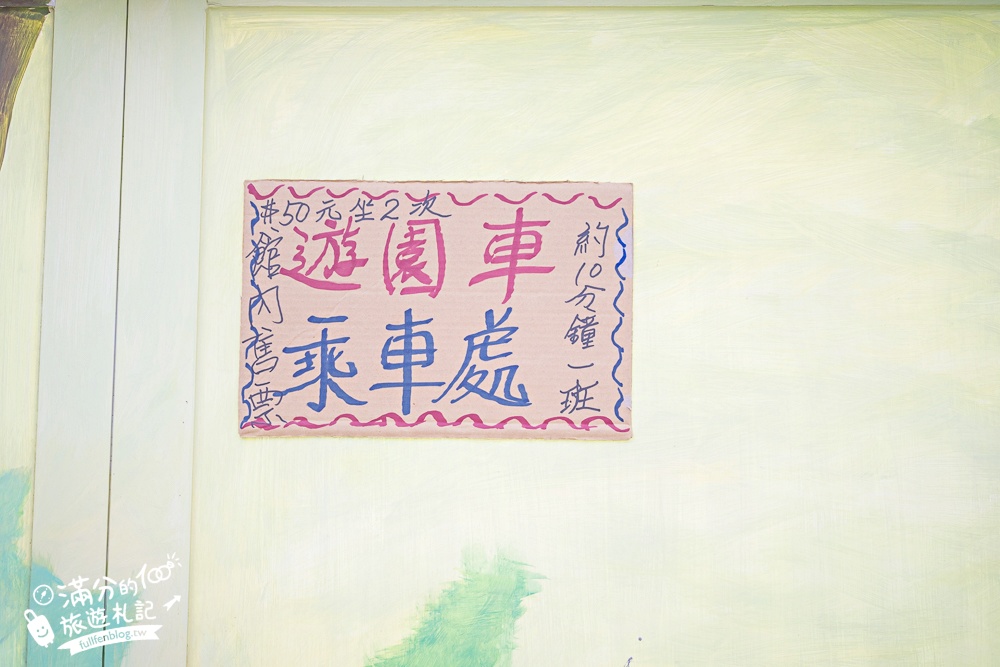 #50元坐2次
遊園車
乘車處
館內售票
約10分鐘一班
滿分的
旅遊札記
fullfenblog.tw